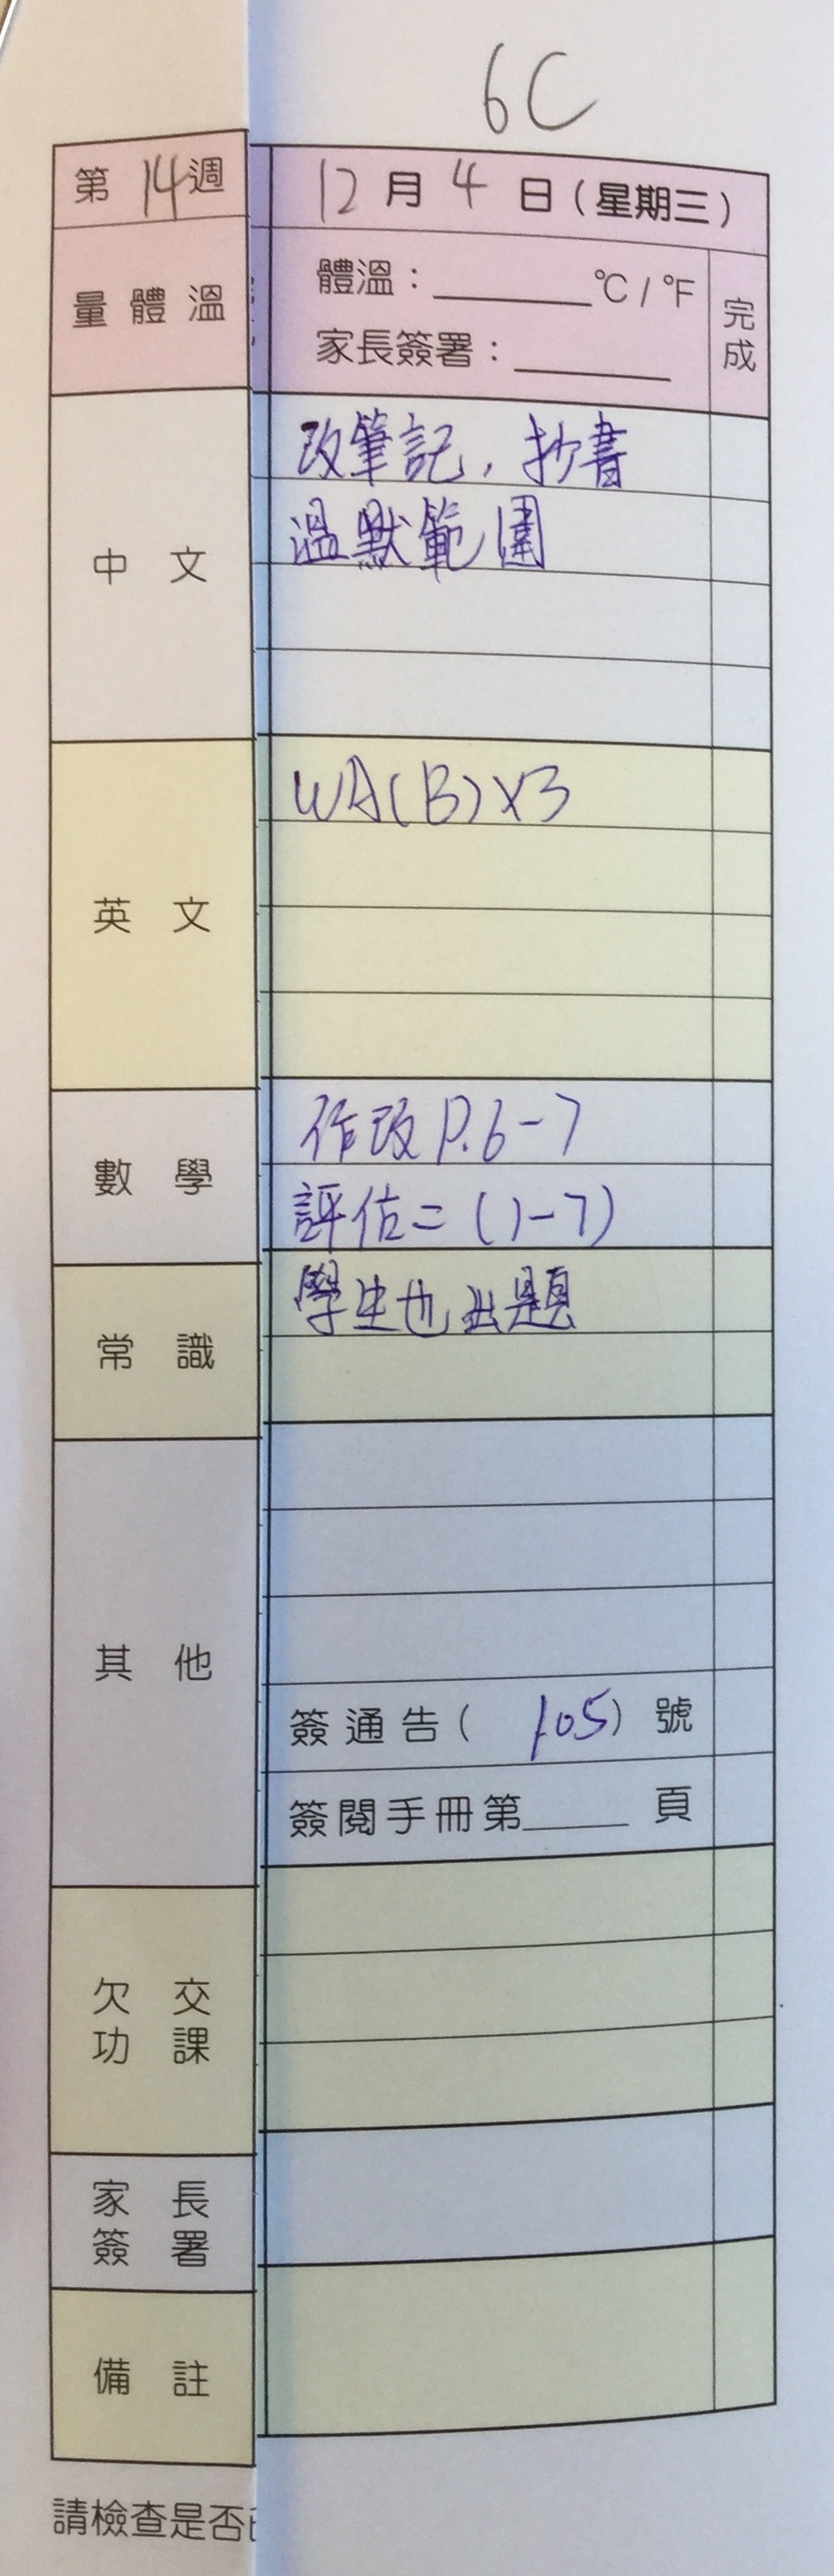 6C
第14週 12月4日(星期三)
量體溫 體溫:______°C/°F 完成
家長簽署:______
中文 改筆記,抄書
溫默範圍
英文 WA(B)×3
數學 作改P.6-7
評估二(1-7)
常識 學生也出題
其他
簽通告(105)號
簽閱手冊第____頁
欠交
功課
家長
簽署
備註
請檢查是否